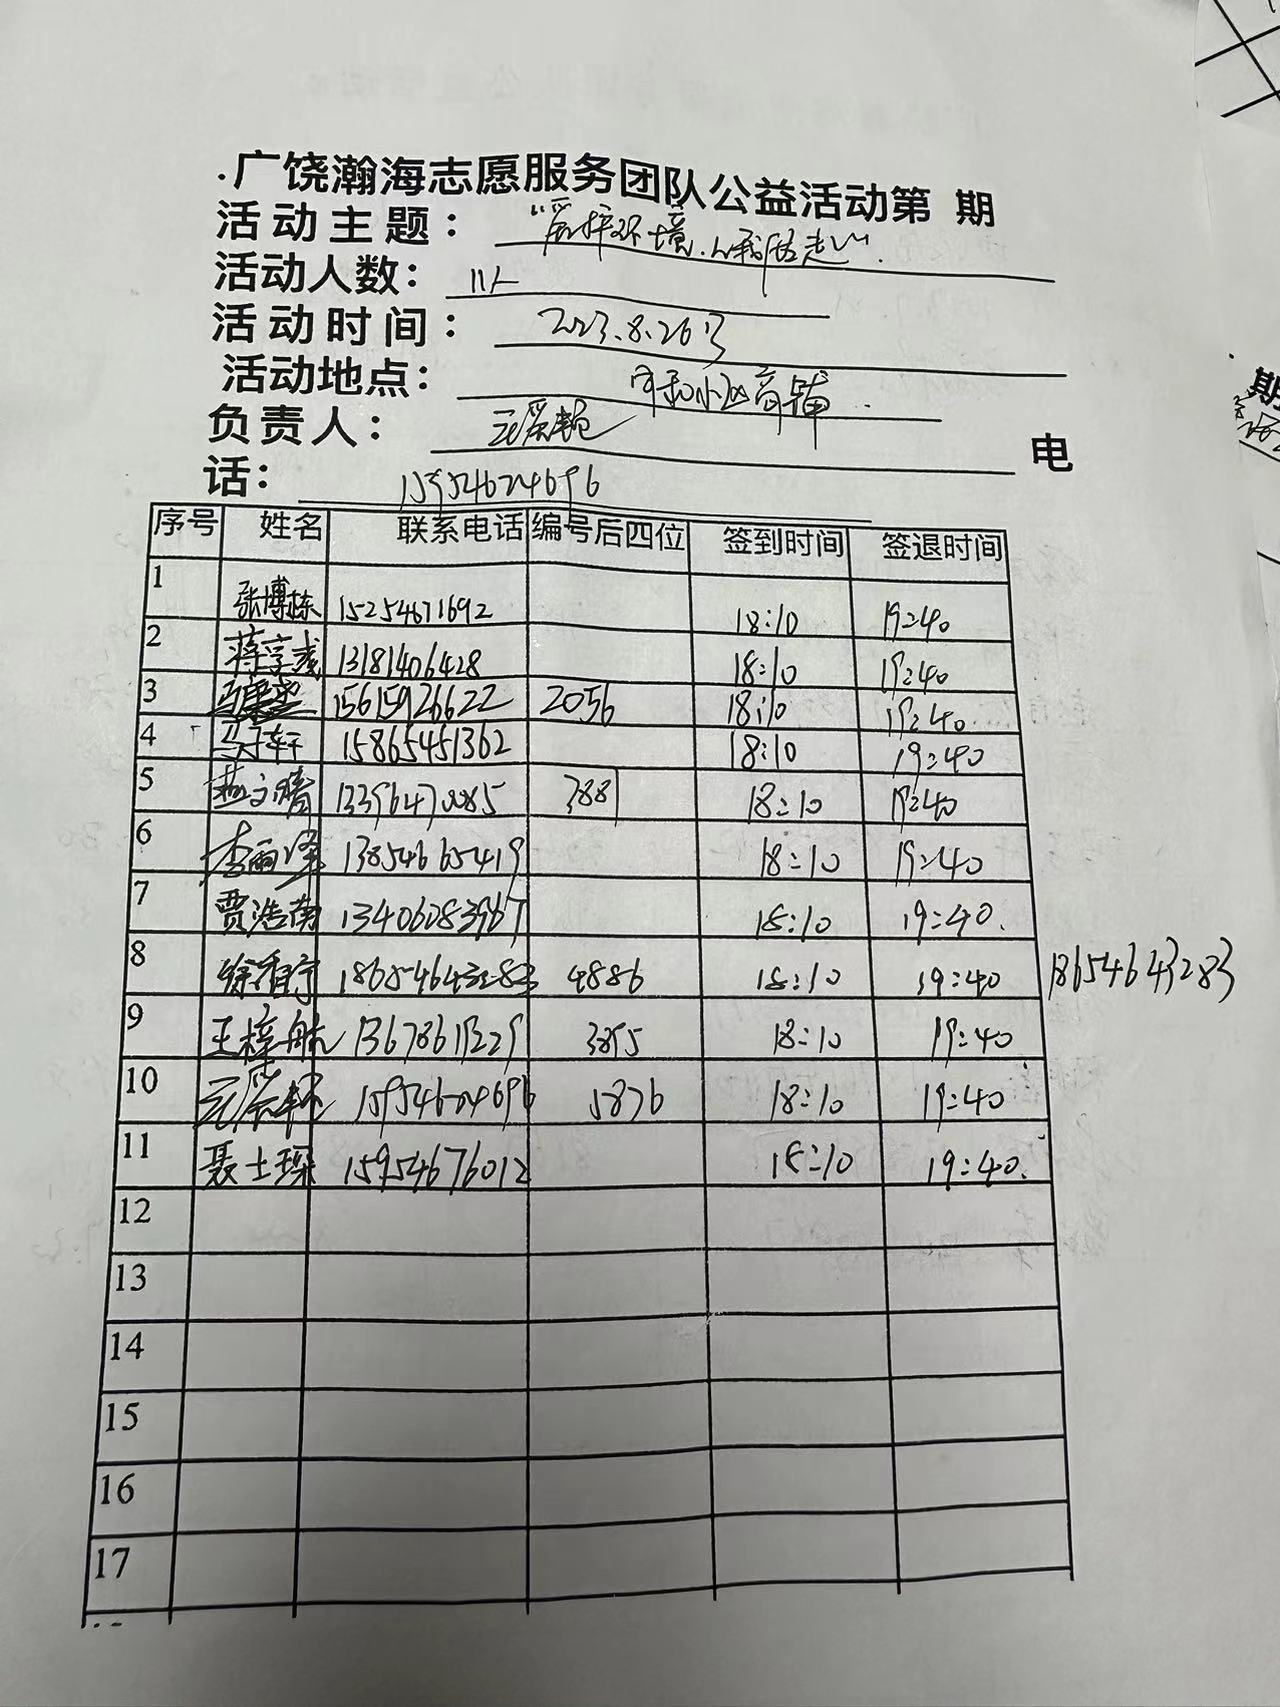 .广饶瀚海志愿服务团队公益活动第 期
活动主题："爱护环境.从我做起".
活动人数：11人
活动时间：2023.8.26日
活动地点：小区商铺.
负责人：
电
话：15954624696
序号 姓名 联系电话 编号后四位 签到时间 签退时间
1 张博栋 15254671692 18:10 19:40
2 蒋享彧 13181406428 18:10 19:40
3 15615926622 2056 18:10 19:40
4 马子轩 15865451362 18:10 19:40
5 燕文晴 13396470085 3881 18:10 19:40
6 李雨泽 13854665419 18:10 19:40
7 贾浩南 13406083967 18:10 19:40.
8 4886 18:10 19:40 18654643283
9 王梓航 13678619229 3895 18:10 19:40
10 15954624696 5876 18:10 19:40
11 聂士琛 15954676012 18:10 19:40.
12
13
14
15
16
17
期